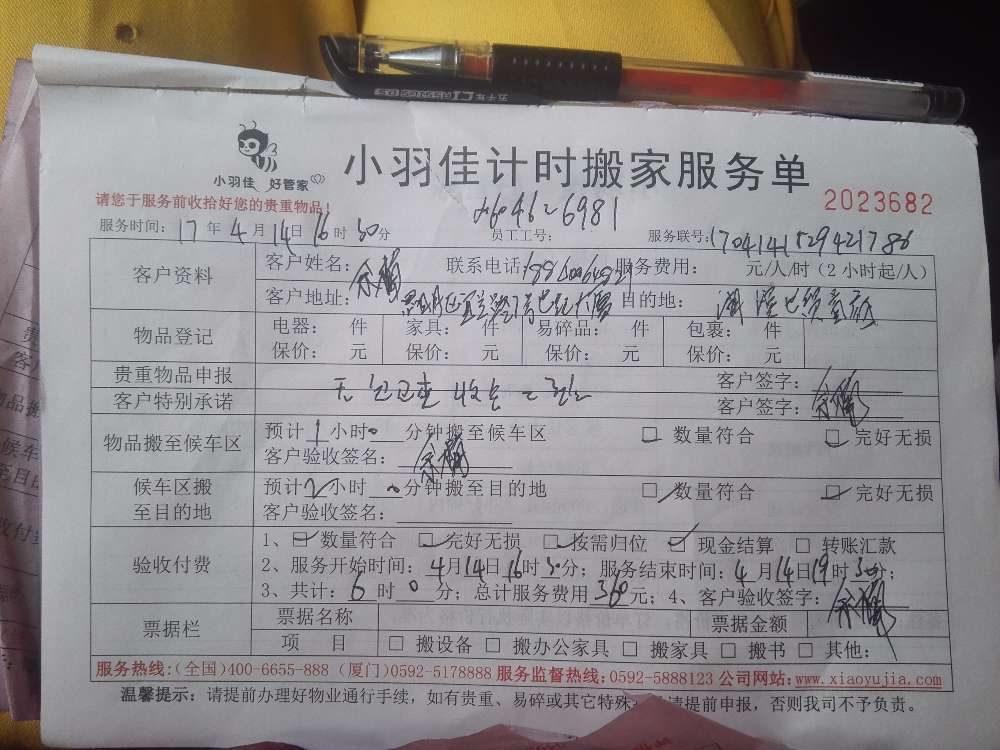 小羽佳 好管家
小羽佳计时搬家服务单
请您于服务前收拾好您的贵重物品!
2023682
服务时间: 17 年 4 月 14 日 16 时 30 分 员工工号: 服务联号: 170414152942178
客户资料
客户姓名: 联系电话: 服务费用: 元/人/时 (2 小时起/人)
客户地址: 目的地:
物品登记
电器: 件 家具: 件 易碎品: 件 包裹: 件
保价: 元 保价: 元 保价: 元 保价: 元
贵重物品申报 无 客户签字:
客户特别承诺 客户签字:
物品搬至候车区
预计 1 小时 0 分钟搬至候车区 数量符合 完好无损
客户验收签名:
候车区搬至目的地
预计 2 小时 0 分钟搬至目的地 数量符合 完好无损
客户验收签名:
验收付费
1、 数量符合 完好无损 按需归位 现金结算 转账汇款
2、服务开始时间: 4 月 14 日 16 时 30 分; 服务结束时间: 4 月 14 日 19 时 30 分;
3、共计: 6 时 0 分; 总计服务费用 360 元; 4、客户验收签字:
票据栏
票据名称 票据金额
项 目 搬设备 搬办公家具 搬家具 搬书 其他:
服务热线: (全国)400-6655-888 (厦门)0592-5178888 服务监督热线: 0592-5888123 公司网站: www.xiaoyujia.com
温馨提示: 请提前办理好物业通行手续, 如有贵重、易碎或其它特殊 请提前申报, 否则我司不予负责。